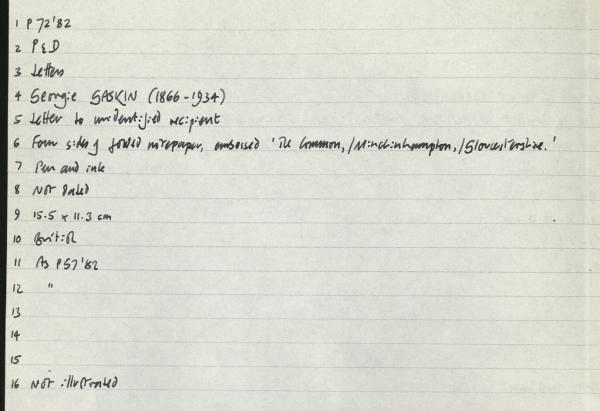 1 P 72'82
2 P&D
3 Letters
4 Georgie GASKIN (1866-1934)
5 Letter to unidentified recipient
6 Four sides of folded notepaper, embossed 'The Common,/Minchinhampton,/Gloucestershire.'
7 Pen and ink
8 Not dated
9 15.5 x 11.3 cm
10 British
11 As P57'82
12 "
13
14
15
16 Not illustrated